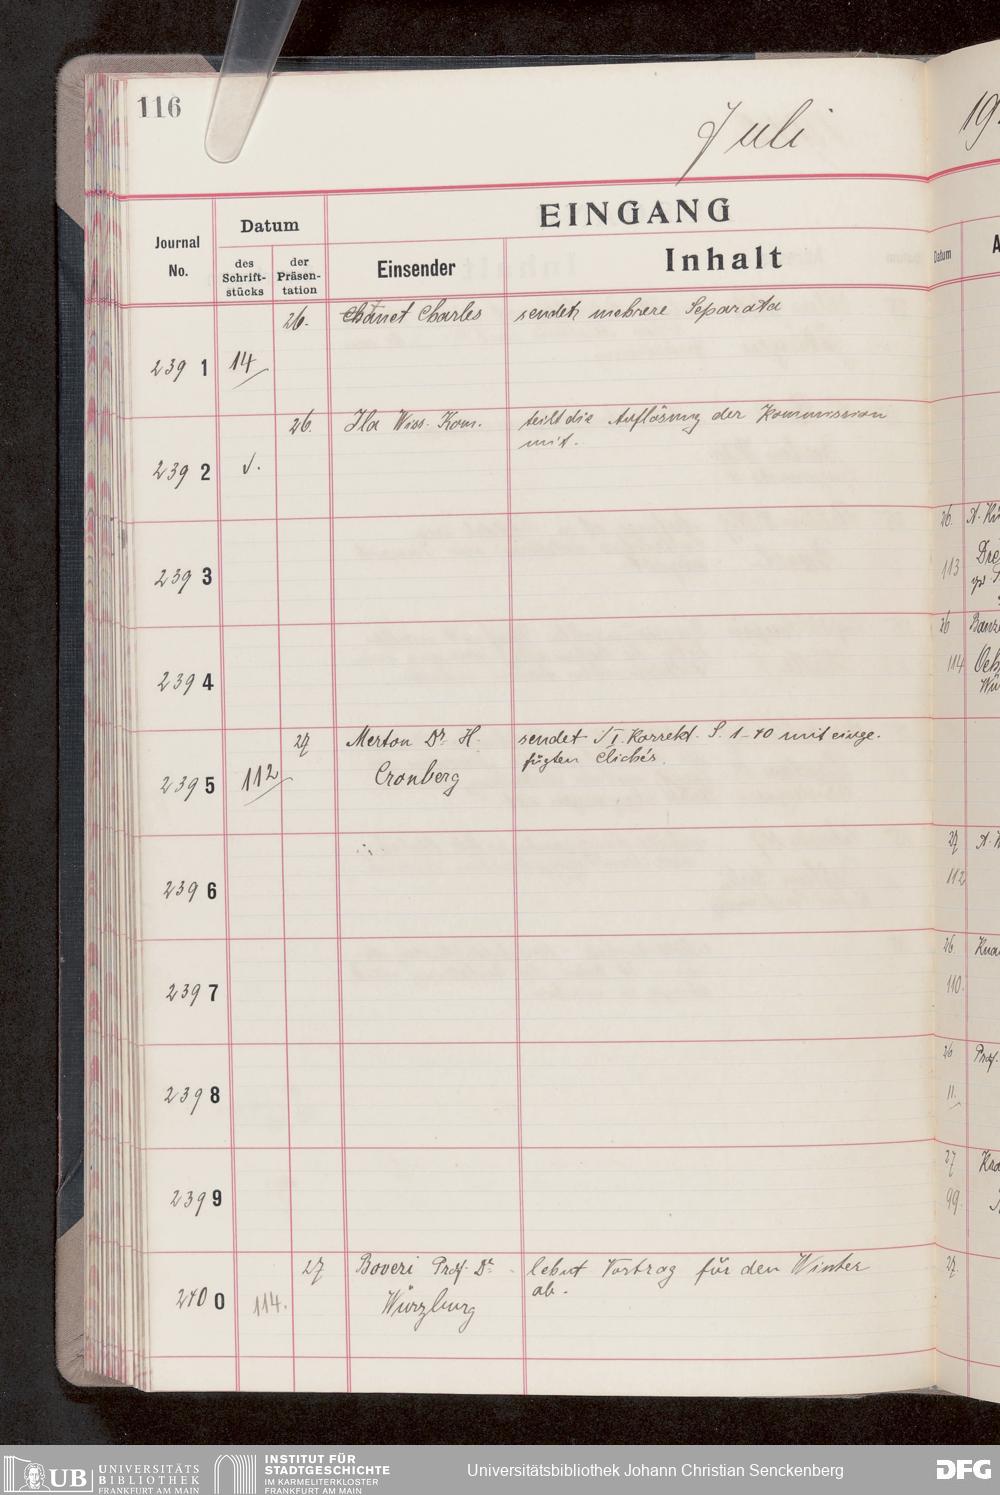 116
Juli
19
EINGANG
Datum
Journal No.
des Schrift-stücks
der Präsen-tation
Einsender
Inhalt
Datum
A
239 1
14
26.
Charles
sendet mehrere Separata
239 2
26.
Ila Wiss. Kom.
teilt die Auflösung der Kommission
mit.
239 3
26.
113
239 4
26
114
239 5
112
27
Merton Dr. H.
Cronberg
sendet I. Korrekt. S. 1-40 mit einge-
fügten Clichés
239 6
27
112
239 7
26.
110.
239 8
26
Prof.
11.
239 9
27
99.
240 0
114.
27
Boveri Prof. Dr.
Würzburg
lehnt Vortrag für den Winter
ab.
27.
UB UNIVERSITÄTS
BIBLIOTHEK
FRANKFURT AM MAIN
INSTITUT FÜR
STADTGESCHICHTE
IM KARMELITERKLOSTER
FRANKFURT AM MAIN
Universitätsbibliothek Johann Christian Senckenberg
DFG